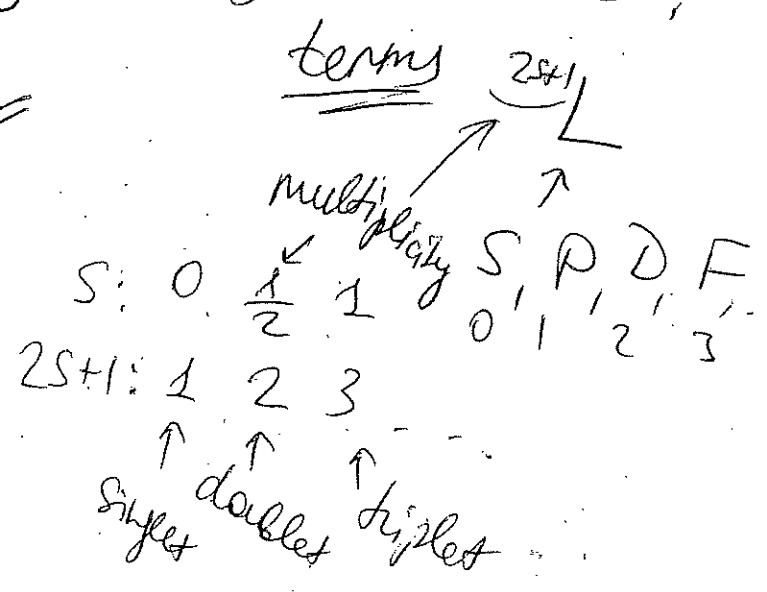 terms ²ˢ⁺¹L
multiplicity
S, P, D, F, ..
0 1 2 3
S: 0 1/2 1
2S+1: 1 2 3 - - .
singlet doublet triplet ...